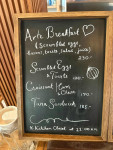 Arte Breakfast
(Scrambled eggs,
bacon, toasts, salad, juice)
220.-
Scrambled Eggs
& Toasts
100.-
Croissant Ham
& Cheese
Tuna Sandwich
Kitchen Closed at